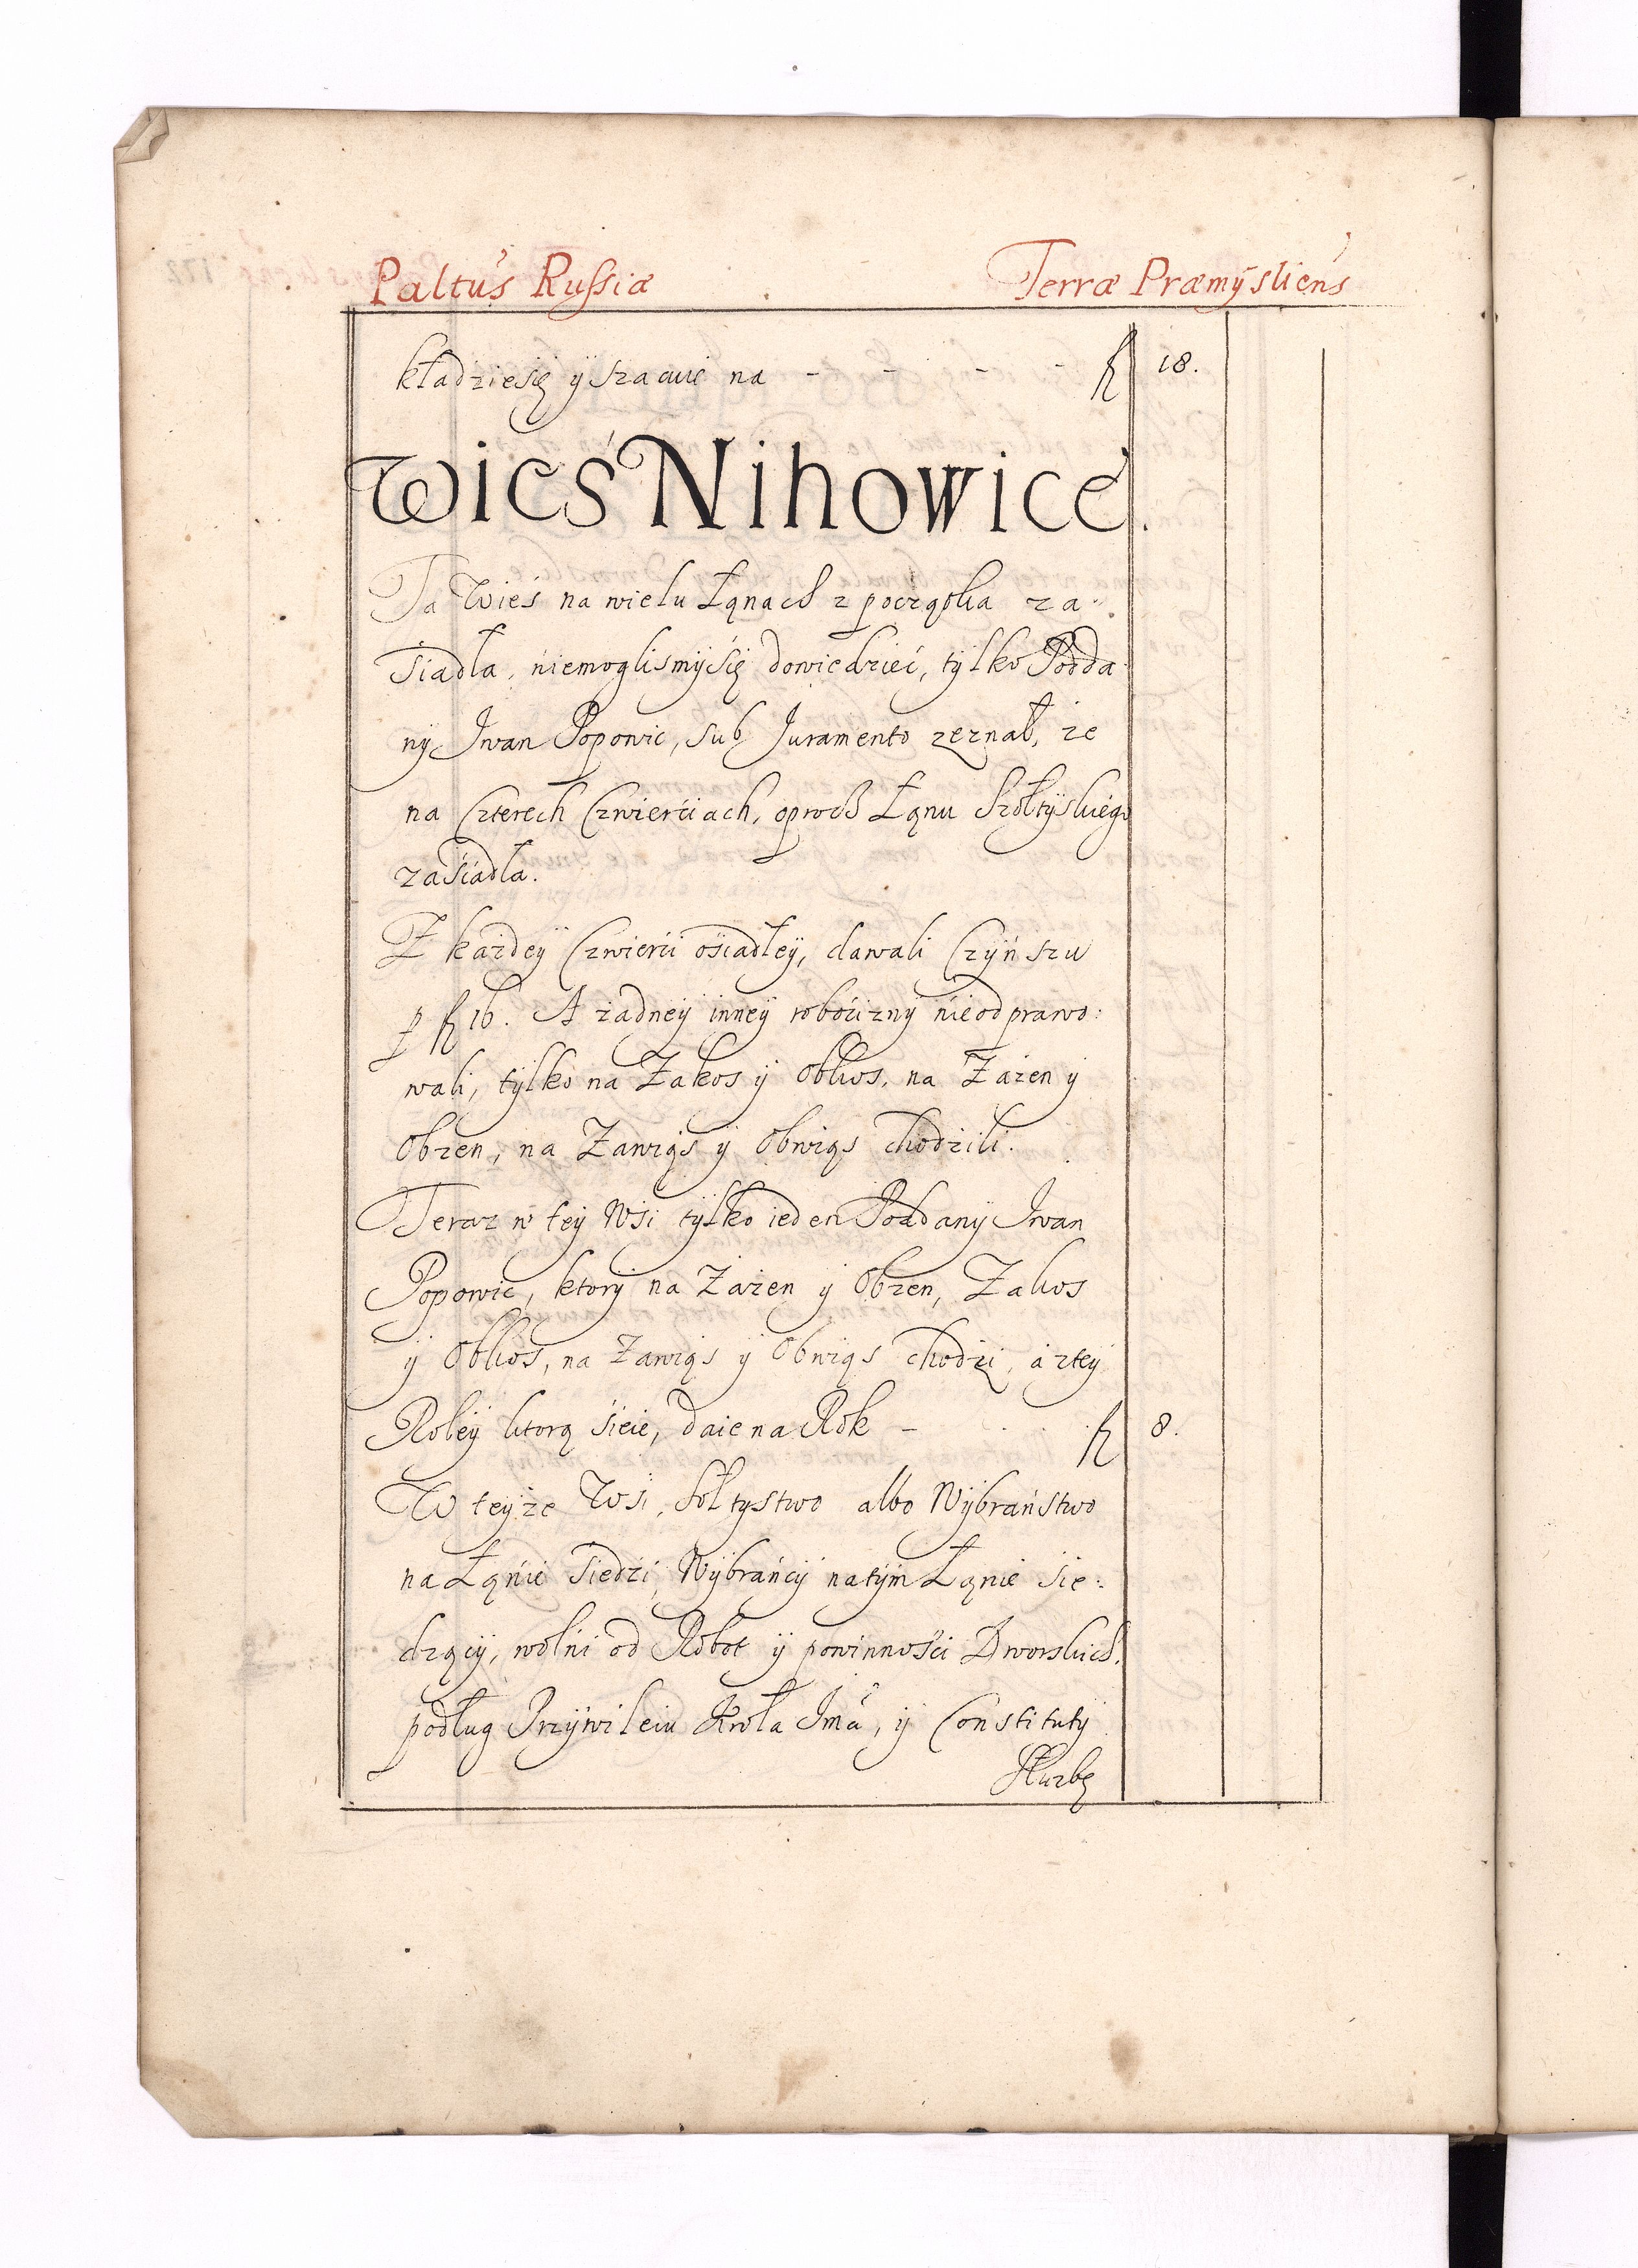 Paltus Russiæ Terræ Præmysliens
kładziesię y szacuie na - - - - - fl 18.
Wieś Nihowice.
Ta Wieś na wielu Łąnach z początku za-
siadła, niemoglismysię dowiedzieć, tylko Podda
ny Iwan Popowic, sub Iuramento zeznał, że
na Czterech Czwierciach, oprocz Łąnu Szołtyskiego
zásiadła.
Z każdey Czwierci osiadłey, dawali Czynszu
p fl 16. A żadney inney robocizny nieodprawo:
wali, tylko na Zakos y Obkos, na Zażen y
Obżen, na Zawiąs y Obwiąs chodzili.
Teraz w tey Wsi tylko ieden Poddany Iwan
Popowic, ktory na Zażen y Obżen, Zakos
y Obkos, na Zawiąs y Obwiąs chodzi, á ztey
Roley ktorą sieie, daie na Rok - fl 8.
W teyże Wsi, Sołtystwo albo Wybraństwo
na Łąnie siedzi, Wybrańcy natym Łąnie sie:
dzący, wolni od Robot y powinności Dworskich.
podług Przywileiu Krola Imći, y Constituty
Służbę